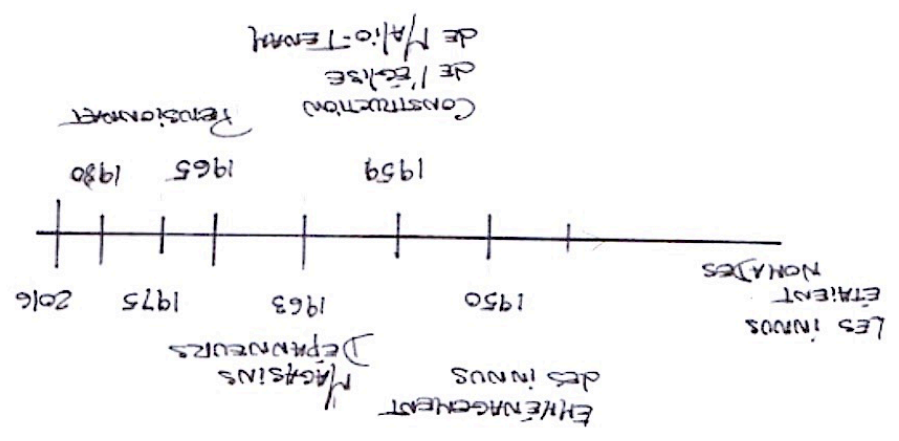 EMMÉNAGEMENT
DES INNUS
MAGASINS
DÉPANNEURS
LES INNUS
ÉTAIENT
NOMADES
1950
1963
1975
2016
1959
1965
1980
CONSTRUCTION
DE L'ÉGLISE
DE MALIO-TENAM
PENSIONNAT